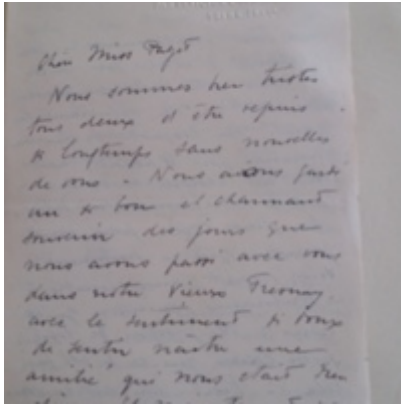 Chère Miss Paget
Nous sommes bien tristes
tous deux d'être depuis
si longtemps sans nouvelles
de vous. Nous avons gardé
un si bon et charmant
souvenir des jours que
nous avons passé avec vous
dans notre vieux Fresnay,
avec le sentiment si doux
de sentir naître une
amitié qui nous était bien